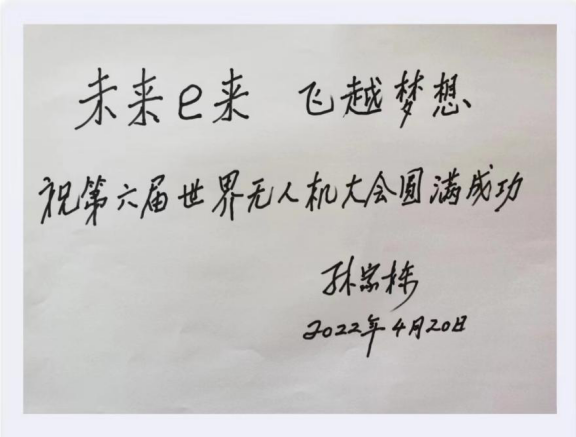 未来e来 飞越梦想
祝第六届世界无人机大会圆满成功
孙宗栋
2022年4月20日